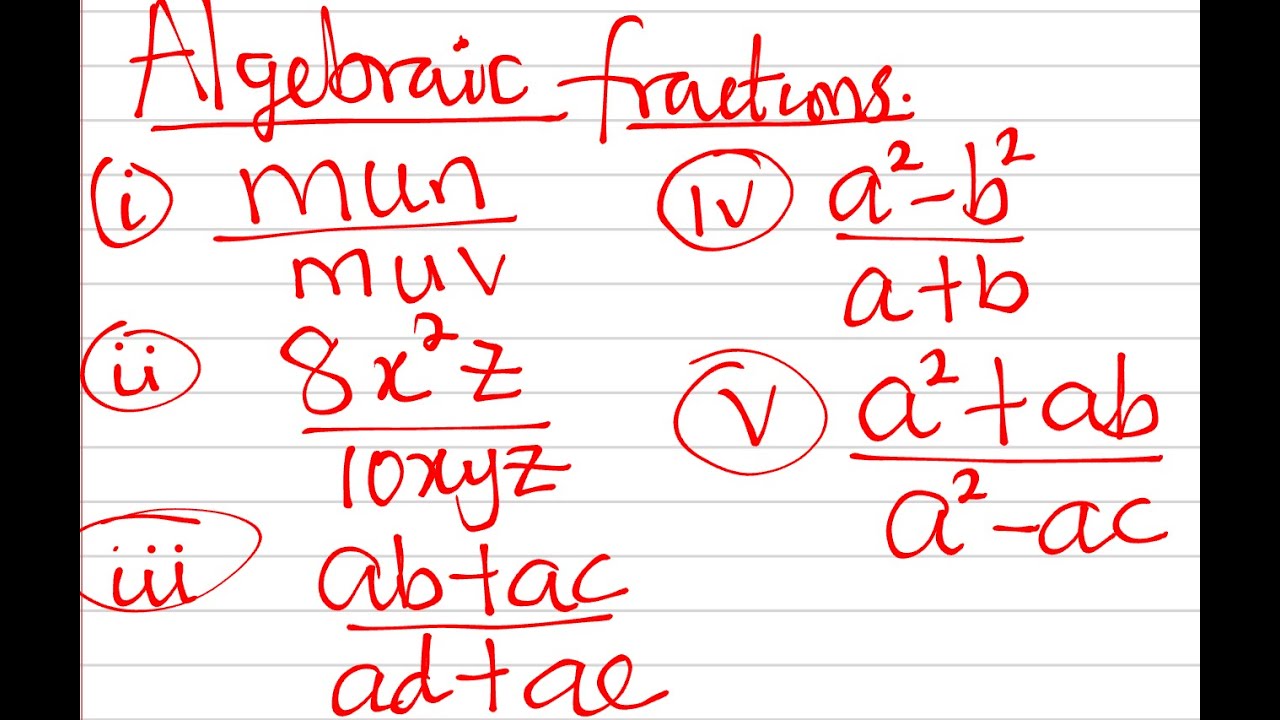 Algebraic fractions.
(i) mun
muv
(ii) 8x²z
10xyz
(iii) ab+ac
ad+ae
(iv) a²-b²
a+b
(v) a²+ab
a²-ac